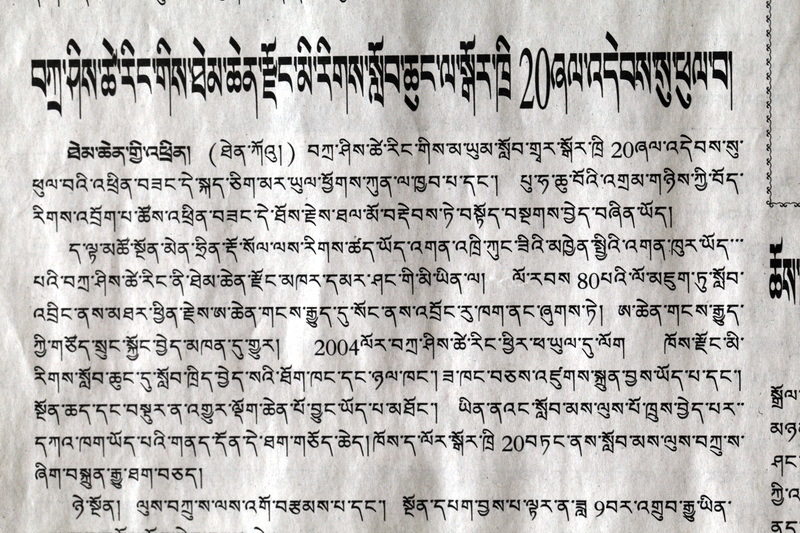 བཀྲ་ཤིས་ཚེ་རིང་གིས་ཐེམ་ཆེན་རྫོང་མི་རིགས་སློབ་ཆུང་ལ་སྒོར་ཁྲི 20ཞལ་འདེབས་སུ་ཕུལ་བ།
ཐེམ་ཆེན་གྱི་འཕྲིན། (ཐེན་ཀོའུ།) བཀྲ་ཤིས་ཚེ་རིང་གིས་མ་ཡུམ་སློབ་གྲྭར་སྒོར་ཁྲི 20ཞལ་འདེབས་སུ་
ཕུལ་བའི་འཕྲིན་བཟང་དེ་སྐད་ཅིག་མར་ཡུལ་ཕྱོགས་ཀུན་ལ་ཁྱབ་པ་དང༌། པུ་ཧ་ཆུ་བོའི་འགྲམ་གཉིས་ཀྱི་བོད་
རིགས་འབྲོག་པ་ཚོས་འཕྲིན་བཟང་དེ་ཐོས་རྗེས་ཐལ་མོ་བརྡེབས་ཏེ་བསྟོད་བསྔགས་བྱེད་བཞིན་ཡོད།
ད་ལྟ་མཚོ་སྔོན་མེན་ཧྥིན་རྡོ་སོལ་ལས་རིགས་ཚད་ཡོད་འགན་འཁྲི་ཀུང་ཟིའི་མཁྱེན་སྤྱིའི་འགན་ཁུར་ཡོད་
པའི་བཀྲ་ཤིས་ཚེ་རིང་ནི་ཐེམ་ཆེན་རྫོང་མཁར་དམར་ཤང་གི་མི་ཡིན་ལ། ལོ་རབས 80པའི་ལོ་མཇུག་ཏུ་སློབ་
འབྲིང་ནས་མཐར་ཕྱིན་རྗེས་ཨ་ཆེན་གངས་རྒྱུད་དུ་སོང་ནས་འབྲོང་རུ་ཁག་ནང་ཞུགས་ཏེ། ཨ་ཆེན་གངས་རྒྱུད་
ཀྱི་གཙོད་སྲུང་སྐྱོང་བྱེད་མཁན་དུ་གྱུར། 2004ལོར་བཀྲ་ཤིས་ཚེ་རིང་ཕྱིར་ཕ་ཡུལ་དུ་ལོག ཁོས་རྫོང་མི་
རིགས་སློབ་ཆུང་དུ་སློབ་ཁྲིད་བྱེད་སའི་ཐོག་ཁང་དང་ཉལ་ཁང༌། ཟ་ཁང་བཅས་འཛུགས་སྐྲུན་བྱས་ཡོད་པ་དང༌།
སྔོན་ཆད་དང་བསྡུར་ན་འགྱུར་ལྡོག་ཆེན་པོ་བྱུང་ཡོད་པ་མཐོང༌། ཡིན་ནའང་སློབ་མས་ལུས་པོ་ཁྲུས་བྱེད་པར་
དཀའ་ཁག་ཡོད་པའི་གནད་དོན་དེ་ཐག་གཅོད་ཆེད། ཁོས་ད་ལོར་སྒོར་ཁྲི 20བཏང་ནས་སློབ་མས་ལུས་བཀྲུ་ས་
ཞིག་བསྐྲུན་རྒྱུ་ཐག་བཅད།
ཉེ་སྔོན། ལུས་བཀྲུ་ས་ལས་འགོ་བརྩམས་པ་དང༌། སྔོན་དཔག་བྱས་པ་ལྟར་ན་ཟླ 9བར་འགྲུབ་རྒྱུ་ཡིན་